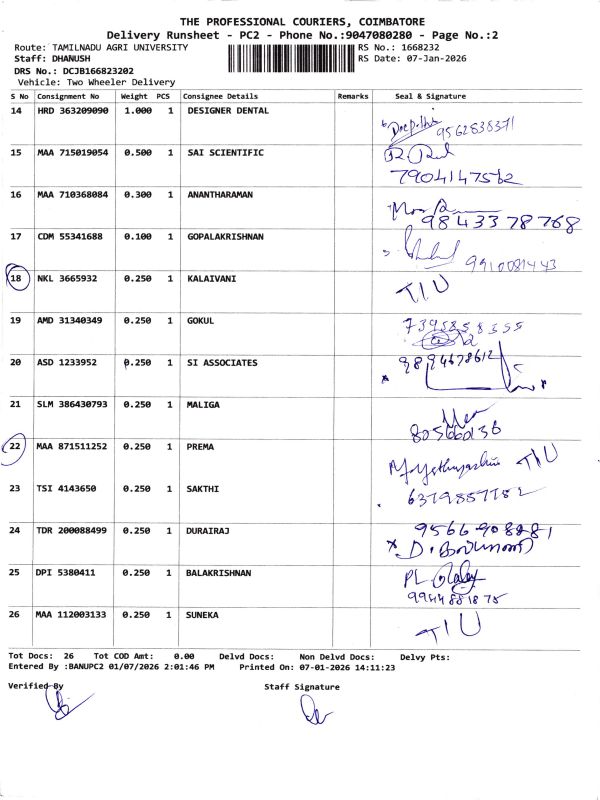 THE PROFESSIONAL COURIERS, COIMBATORE
Delivery Runsheet - PC2 - Phone No.:9047080280 - Page No.:2
Route: TAMILNADU AGRI UNIVERSITY RS No.: 1668232
Staff: DHANUSH RS Date: 07-Jan-2026
DRS No.: DCJB166823202
Vehicle: Two Wheeler Delivery
S No Consignment No Weight PCS Consignee Details Remarks Seal & Signature
14 HRD 363209090 1.000 1 DESIGNER DENTAL
9562838371
15 MAA 715019054 0.500 1 SAI SCIENTIFIC
7904147562
16 MAA 710368084 0.300 1 ANANTHARAMAN
9843378768
17 CDM 55341688 0.100 1 GOPALAKRISHNAN
9910081443
18 NKL 3665932 0.250 1 KALAIVANI
TIU
19 AMD 31340349 0.250 1 GOKUL
7395858355
20 ASD 1233952 0.250 1 SI ASSOCIATES
9894678612
21 SLM 386430793 0.250 1 MALIGA
805660136
22 MAA 871511252 0.250 1 PREMA
TIU
23 TSI 4143650 0.250 1 SAKTHI
6379857782
24 TDR 200088499 0.250 1 DURAIRAJ
9566908881
25 DPI 5380411 0.250 1 BALAKRISHNAN
9944881875
26 MAA 112003133 0.250 1 SUNEKA
TIU
Tot Docs: 26 Tot COD Amt: 0.00 Delvd Docs: Non Delvd Docs: Delvy Pts:
Entered By :BANUPC2 01/07/2026 2:01:46 PM Printed On: 07-01-2026 14:11:23
Verified By Staff Signature